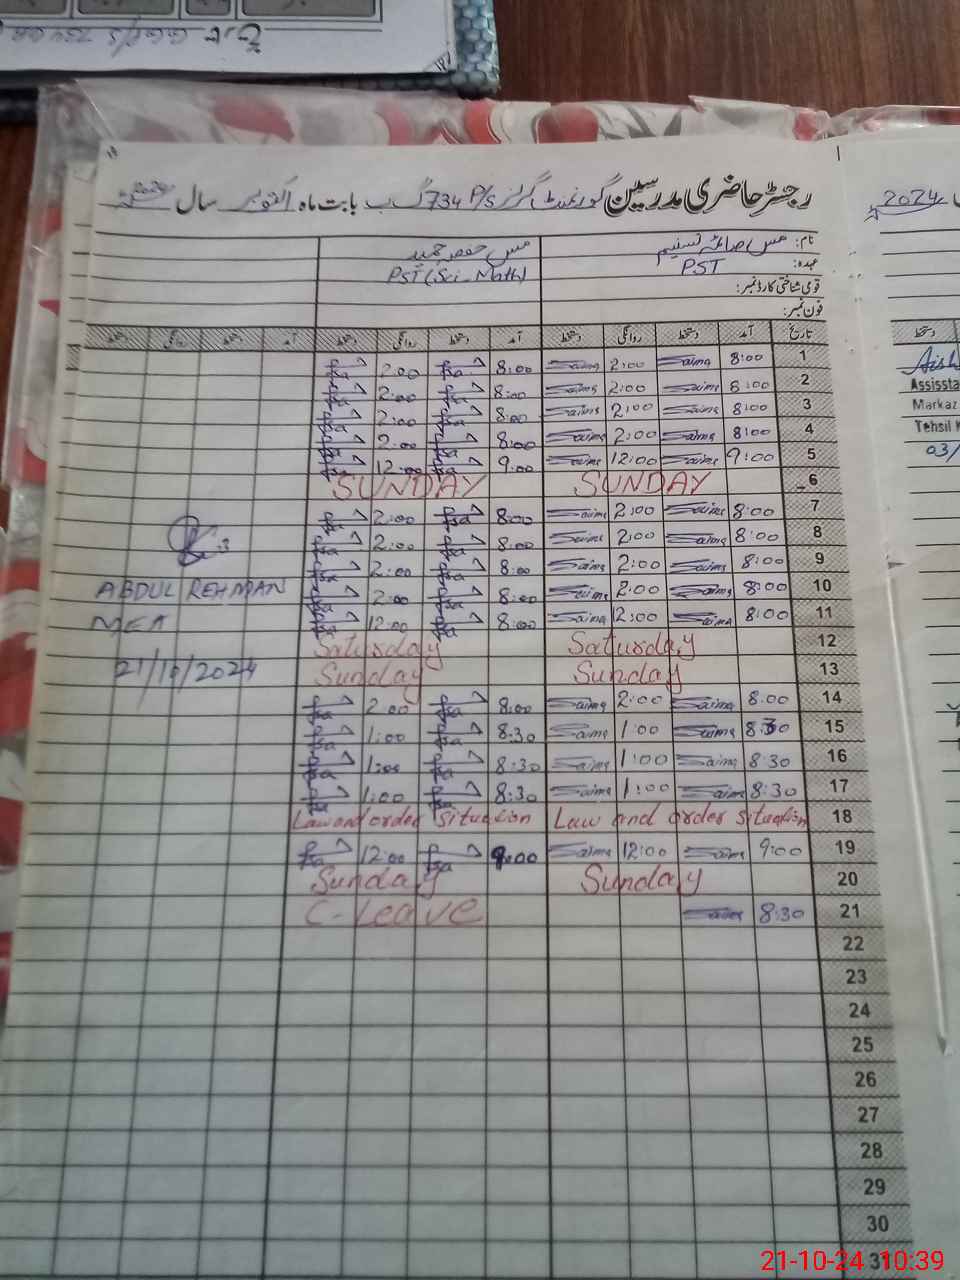 رجسٹر حاضری مدرسین گورنمنٹ گرلز P/S 734 گ ب بابت ماہ اکتوبر سال 2024
نام: مس صائمہ تسنیم مس
عہدہ: PST PST (Sci-Math)
قومی شناختی کارڈ نمبر:
فون نمبر:
تاریخ آمد دستخط روانگی دستخط آمد دستخط روانگی دستخط آمد دستخط روانگی دستخط
1 8:00 Saima 2:00 Saima 8:00 2:00
2 8:00 Saima 2:00 Saima 8:00 2:00
3 8:00 Saima 2:00 Saima 8:00 2:00
4 8:00 Saima 2:00 Saima 8:00 2:00
5 9:00 Saima 12:00 Saima 9:00 12:00
6 SUNDAY SUNDAY
7 8:00 Saima 2:00 Saima 8:00 2:00
8 8:00 Saima 2:00 Saima 8:00 2:00
9 8:00 Saima 2:00 Saima 8:00 2:00
10 8:00 Saima 2:00 Saima 8:00 2:00
11 8:00 Saima 12:00 Saima 8:00 12:00
12 Saturday Saturday
13 Sunday Sunday
14 8:00 Saima 2:00 Saima 8:00 2:00
15 8:30 Saima 1:00 Saima 8:30 1:00
16 8:30 Saima 1:00 Saima 8:30 1:00
17 8:30 Saima 1:00 Saima 8:30 1:00
18 Law and order situation Law and order situation
19 9:00 Saima 12:00 Saima 9:00 12:00
20 Sunday Sunday
21 8:30 C-Leave
22
23
24
25
26
27
28
29
30
31
ABDUL REHMAN
MEA
21/10/2024
2024
دستخط
Markaz
03/
21-10-24 10:39